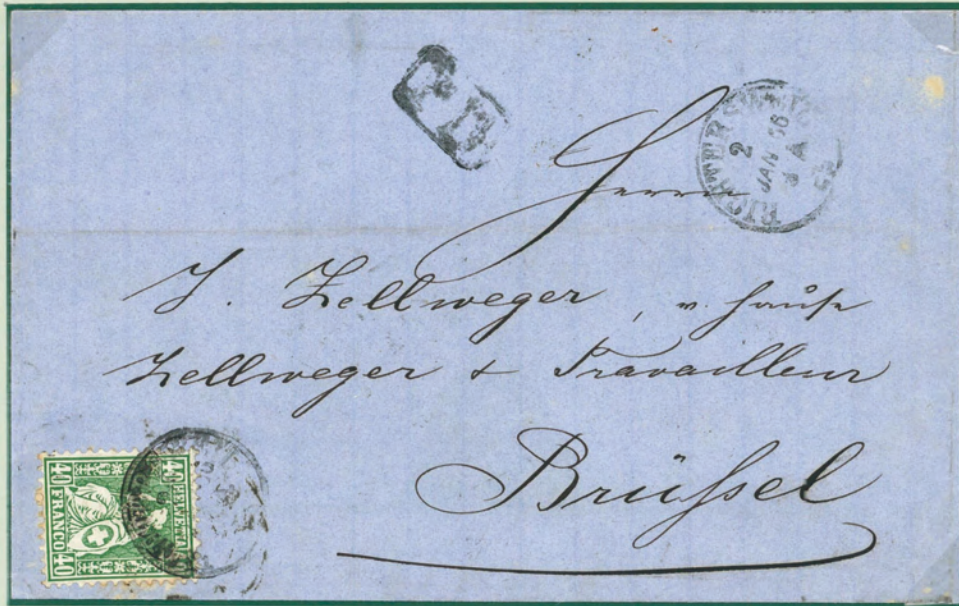 PD
2
JAN
Herrn
J. Zellweger, v. Hause
Zellweger & Travailleur
Brüssel
40 HELVETIA 40
40 FRANCO 40